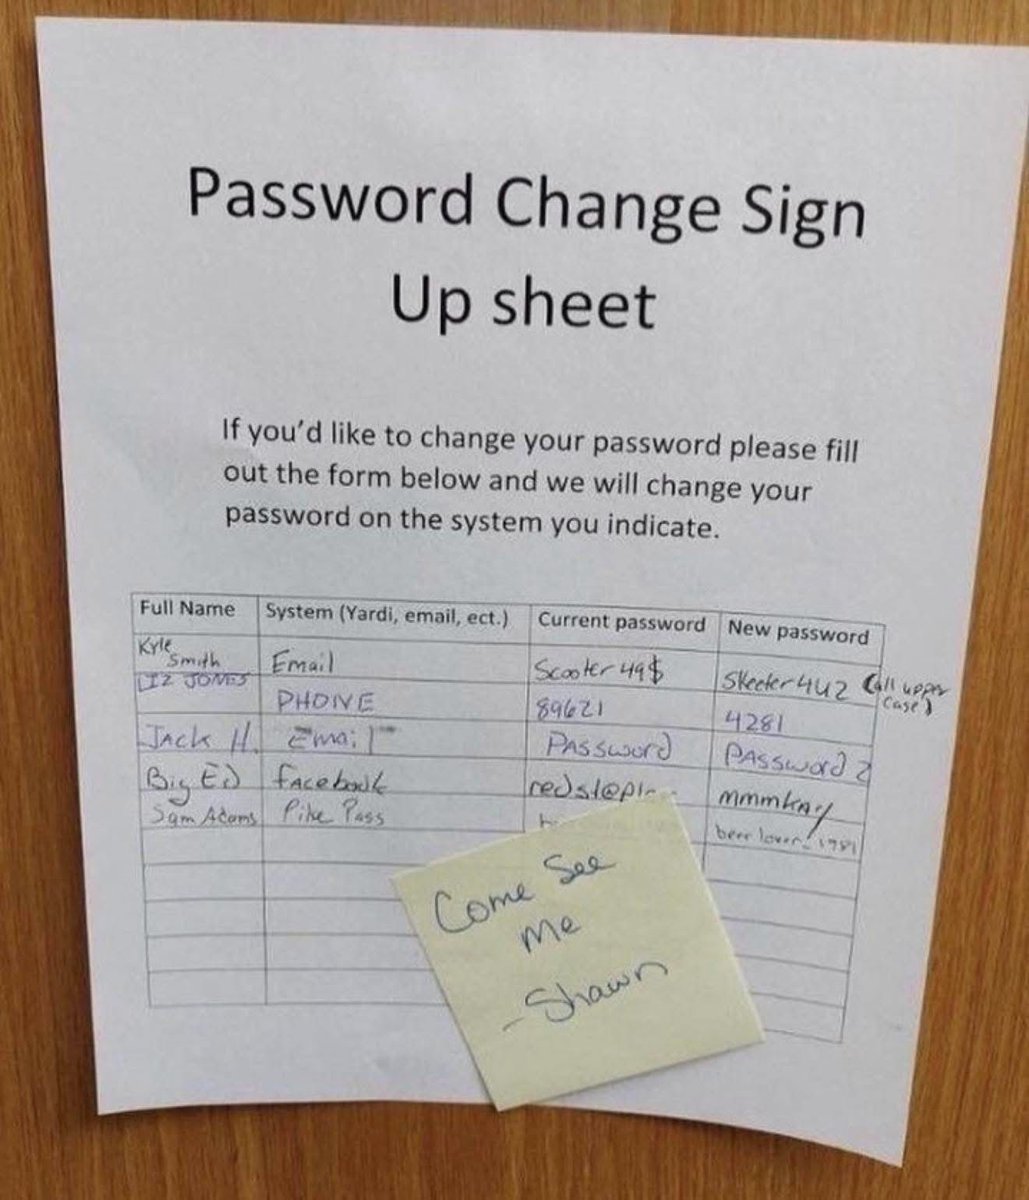 Password Change Sign
Up sheet
If you'd like to change your password please fill
out the form below and we will change your
password on the system you indicate.
Full Name System (Yardi, email, ect.) Current password New password
Kyle Smith Email Scooter49$ Skeeter4U2 (all upper case)
LIZ JONES PHONE 89621 4281
Jack H. Email Password Password2
Big Ed facebook mmmkay
Sam Adams Pike Pass beer lover_1981
Come See
Me
- Shawn